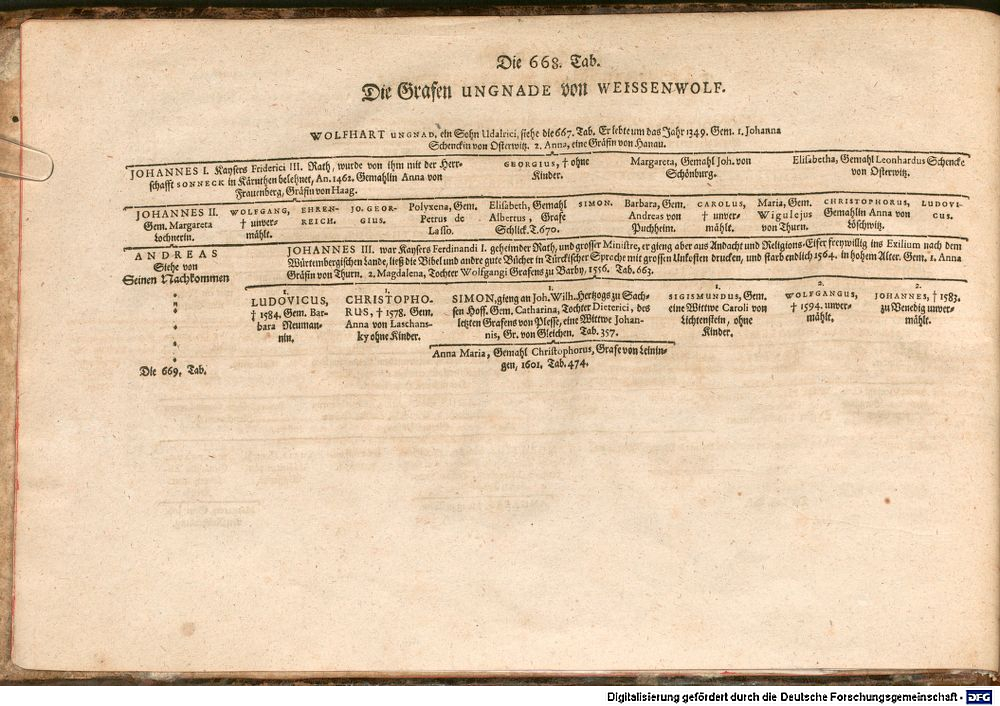 Die 668. Tab.
Die Grafen UNGNADE von WEISSENWOLF.
WOLFHART UNGNAD, ein Sohn Udalrici, siehe die 667. Tab. Er lebte um das Jahr 1349. Gem. 1. Johanna
Schenckin von Osterwitz. 2. Anna, eine Gräfin von Hanau.
JOHANNES I. Kaysers Friderici III. Rath, wurde von ihm mit der Herr-
schafft SONNECK in Kärnthen belehnet, An. 1462. Gemahlin Anna von
Frauenberg, Gräfin von Haag.
GEORGIUS, † ohne
Kinder.
Margareta, Gemahl Joh. von
Schönburg.
Elisabetha, Gemahl Leonhardus Schencke
von Osterwitz.
JOHANNES II.
Gem. Margareta
Lochnerin.
WOLFGANG,
† unver-
mählt.
EHREN-
REICH.
JO. GEOR-
GIUS.
Polyxena, Gem.
Petrus de
Lasso.
Elisabeth, Gemahl
Albertus, Grafe
Schlick. T. 670.
SIMON.
Barbara, Gem.
Andreas von
Puchheim.
CAROLUS,
† unver-
mählt.
Maria, Gem.
Wigulejus
von Thurn.
CHRISTOPHORUS,
Gemahlin Anna von
Löschwitz.
LUDOVI-
CUS.
ANDREAS
Siehe von
Seinen Nachkommen
Die 669. Tab.
JOHANNES III. war Kaysers Ferdinandi I. geheimder Rath, und grosser Ministre, er gieng aber aus Andacht und Religions-Eifer freywillig ins Exilium nach dem
Würtembergischen Lande, ließ die Bibel und andre gute Bücher in Türckischer Sprache mit grossen Unkosten drucken, und starb endlich 1564. in hohem Alter. Gem. 1. Anna
Gräfin von Thurn. 2. Magdalena, Tochter Wolfgangi Grafens zu Barby, 1556. Tab. 663.
1.
LUDOVICUS,
† 1584. Gem. Bar-
bara Neuman-
nin.
1.
CHRISTOPHO-
RUS, † 1578. Gem.
Anna von Laschans-
ky ohne Kinder.
1.
SIMON, gieng an Joh. Wilh. Hertzogs zu Sach-
sen Hoff. Gem. Catharina, Tochter Dieterici, des
letzten Grafens von Plesse, eine Wittwe Johan-
nis, Gr. von Gleichen. Tab. 357.
1.
SIGISMUNDUS, Gem.
eine Wittwe Caroli von
Lichtenstein, ohne
Kinder.
2.
WOLFGANGUS,
† 1594. unver-
mählt.
2.
JOHANNES, † 1583.
zu Venedig unver-
mählt.
Anna Maria, Gemahl Christophorus, Grafe von Leinin-
gen, 1601. Tab. 474.
Digitalisierung gefördert durch die Deutsche Forschungsgemeinschaft - DFG